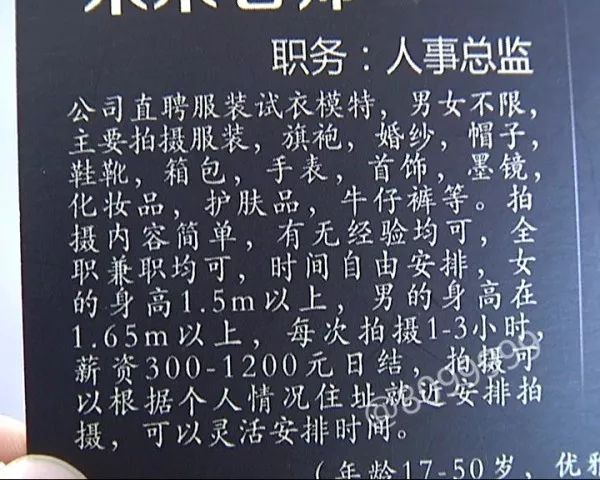 职务：人事总监
公司直聘服装试衣模特，男女不限，
主要拍摄服装，旗袍，婚纱，帽子，
鞋靴，箱包，手表，首饰，墨镜，
化妆品，护肤品，牛仔裤等。拍
摄内容简单，有无经验均可，全
职兼职均可，时间自由安排，女
的身高1.5m以上，男的身高在
1.65m以上，每次拍摄1-3小时，
薪资300-1200元日结，拍摄可
以根据个人情况住址就近安排拍
摄，可以灵活安排时间。
（年龄17-50岁，优雅